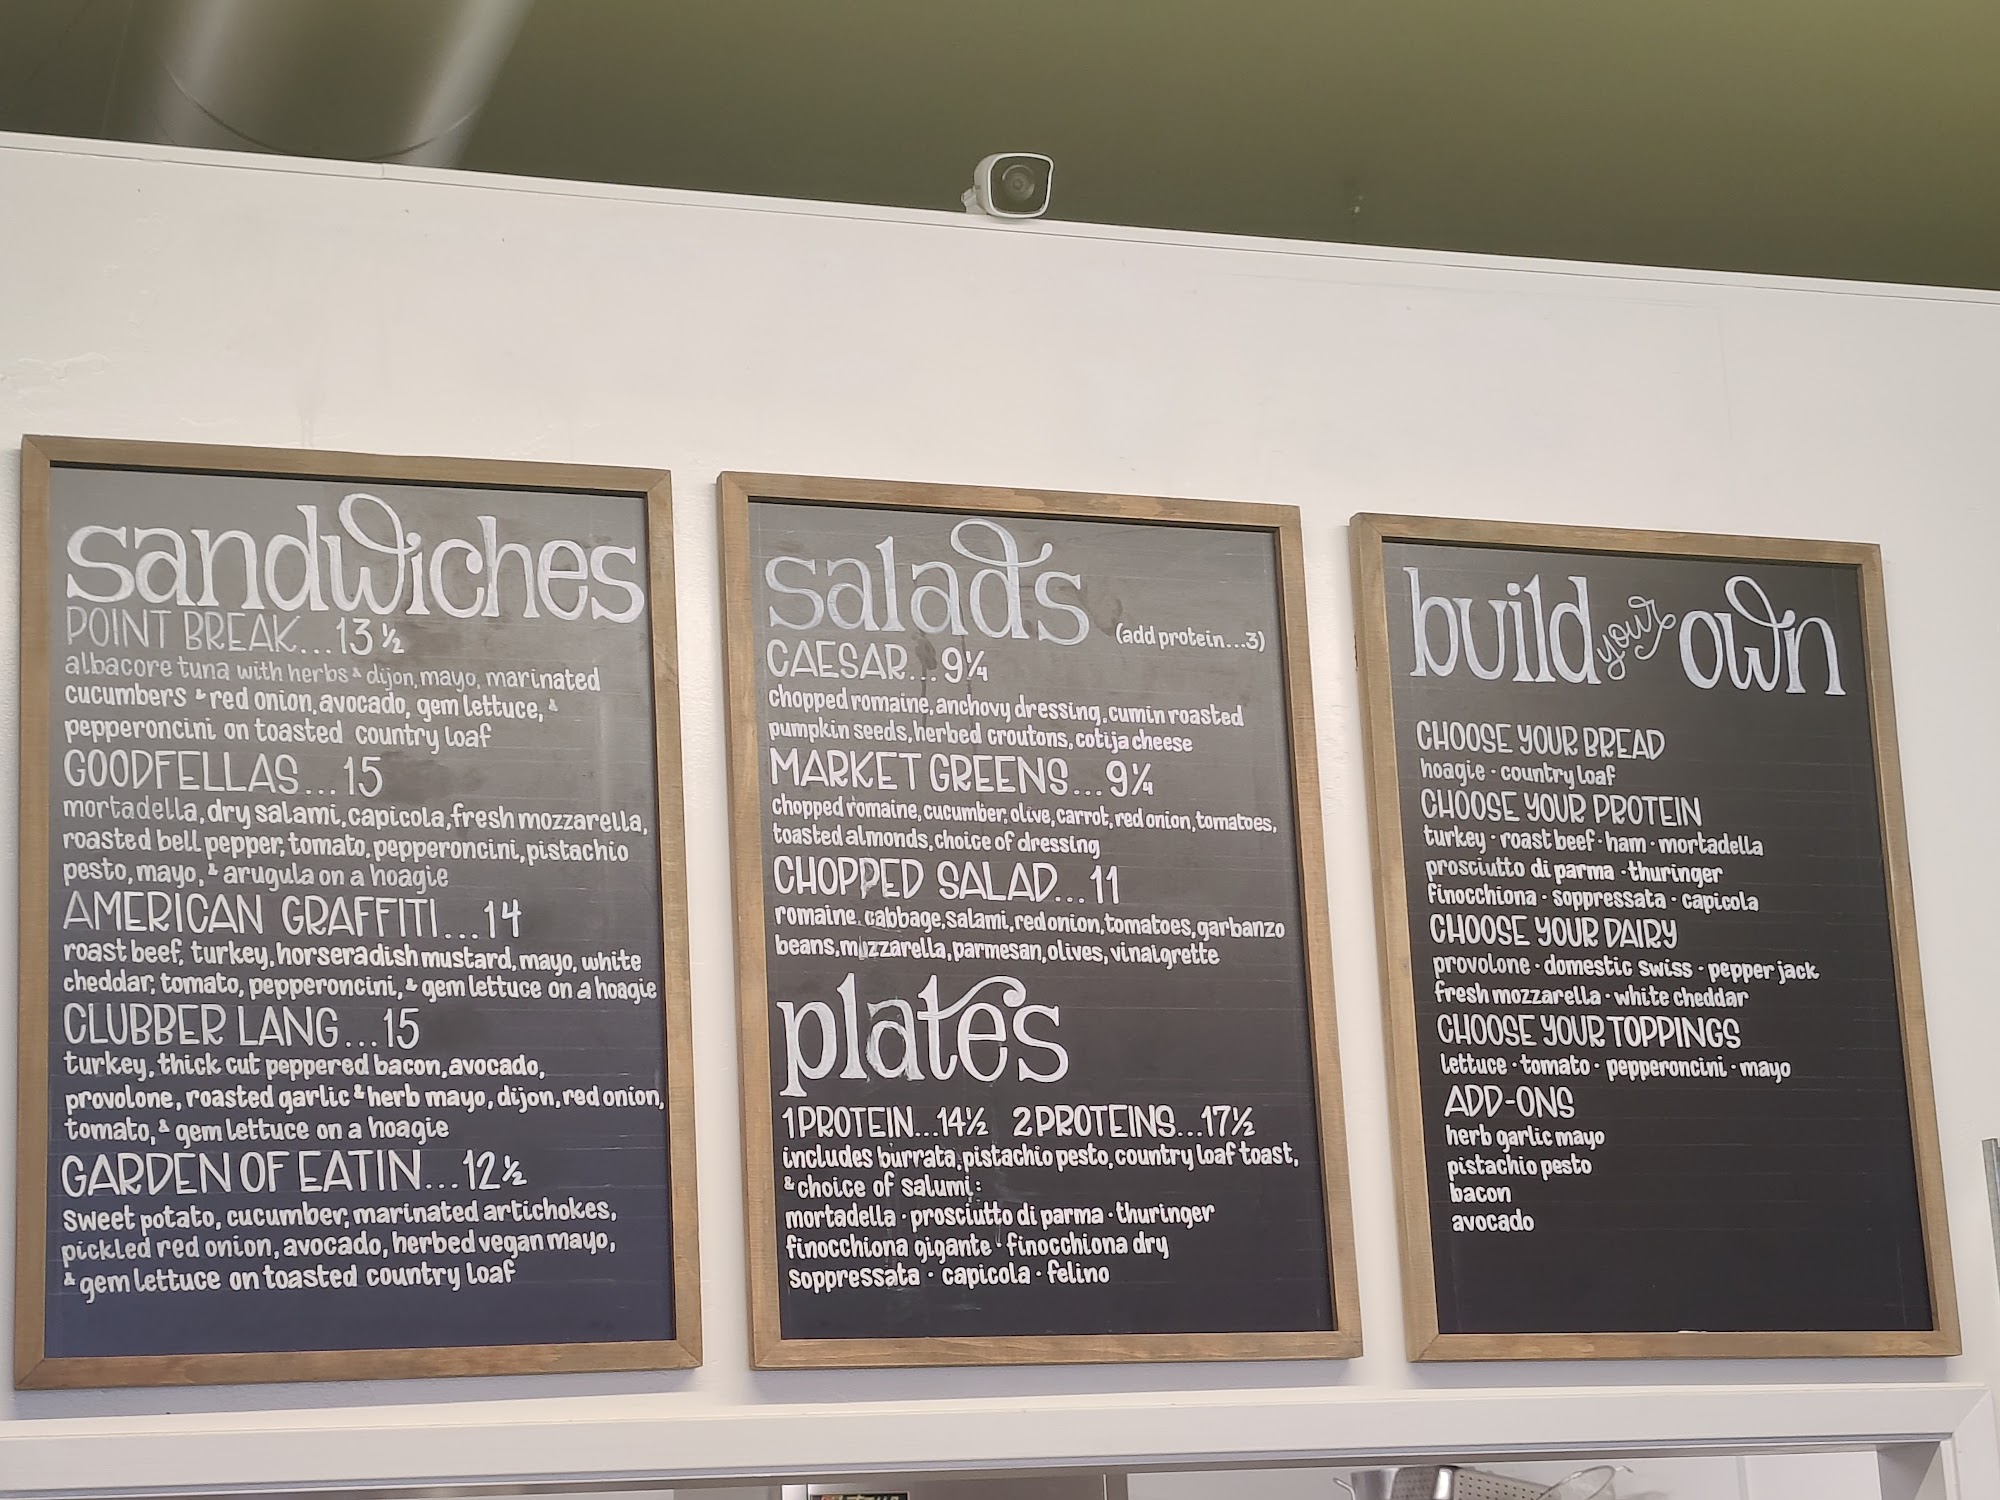 sandwiches
POINT BREAK...13½
albacore tuna with herbs & dijon, mayo, marinated
cucumbers & red onion, avocado, gem lettuce, &
pepperoncini on toasted country loaf
GOODFELLAS...15
mortadella, dry salami, capicola, fresh mozzarella,
roasted bell pepper, tomato, pepperoncini, pistachio
pesto, mayo, & arugula on a hoagie
AMERICAN GRAFFITI...14
roast beef, turkey, horseradish mustard, mayo, white
cheddar, tomato, pepperoncini, & gem lettuce on a hoagie
CLUBBER LANG...15
turkey, thick cut peppered bacon, avocado,
provolone, roasted garlic & herb mayo, dijon, red onion,
tomato, & gem lettuce on a hoagie
GARDEN OF EATIN...12½
sweet potato, cucumber, marinated artichokes,
pickled red onion, avocado, herbed vegan mayo,
& gem lettuce on toasted country loaf
salads
(add protein...3)
CAESAR...9¼
chopped romaine, anchovy dressing, cumin roasted
pumpkin seeds, herbed croutons, cotija cheese
MARKET GREENS...9¼
chopped romaine, cucumber, olive, carrot, red onion, tomatoes,
toasted almonds, choice of dressing
CHOPPED SALAD...11
romaine, cabbage, salami, red onion, tomatoes, garbanzo
beans, muzzarella, parmesan, olives, vinaigrette
plates
1 PROTEIN...14½ 2 PROTEINS...17½
includes burrata, pistachio pesto, country loaf toast,
& choice of salumi:
mortadella · prosciutto di parma · thuringer
finocchiona gigante · finocchiona dry
soppressata · capicola · felino
build your own
CHOOSE YOUR BREAD
hoagie · country loaf
CHOOSE YOUR PROTEIN
turkey · roast beef · ham · mortadella
prosciutto di parma · thuringer
finocchiona · soppressata · capicola
CHOOSE YOUR DAIRY
provolone · domestic swiss · pepper jack
fresh mozzarella · white cheddar
CHOOSE YOUR TOPPINGS
lettuce · tomato · pepperoncini · mayo
ADD-ONS
herb garlic mayo
pistachio pesto
bacon
avocado